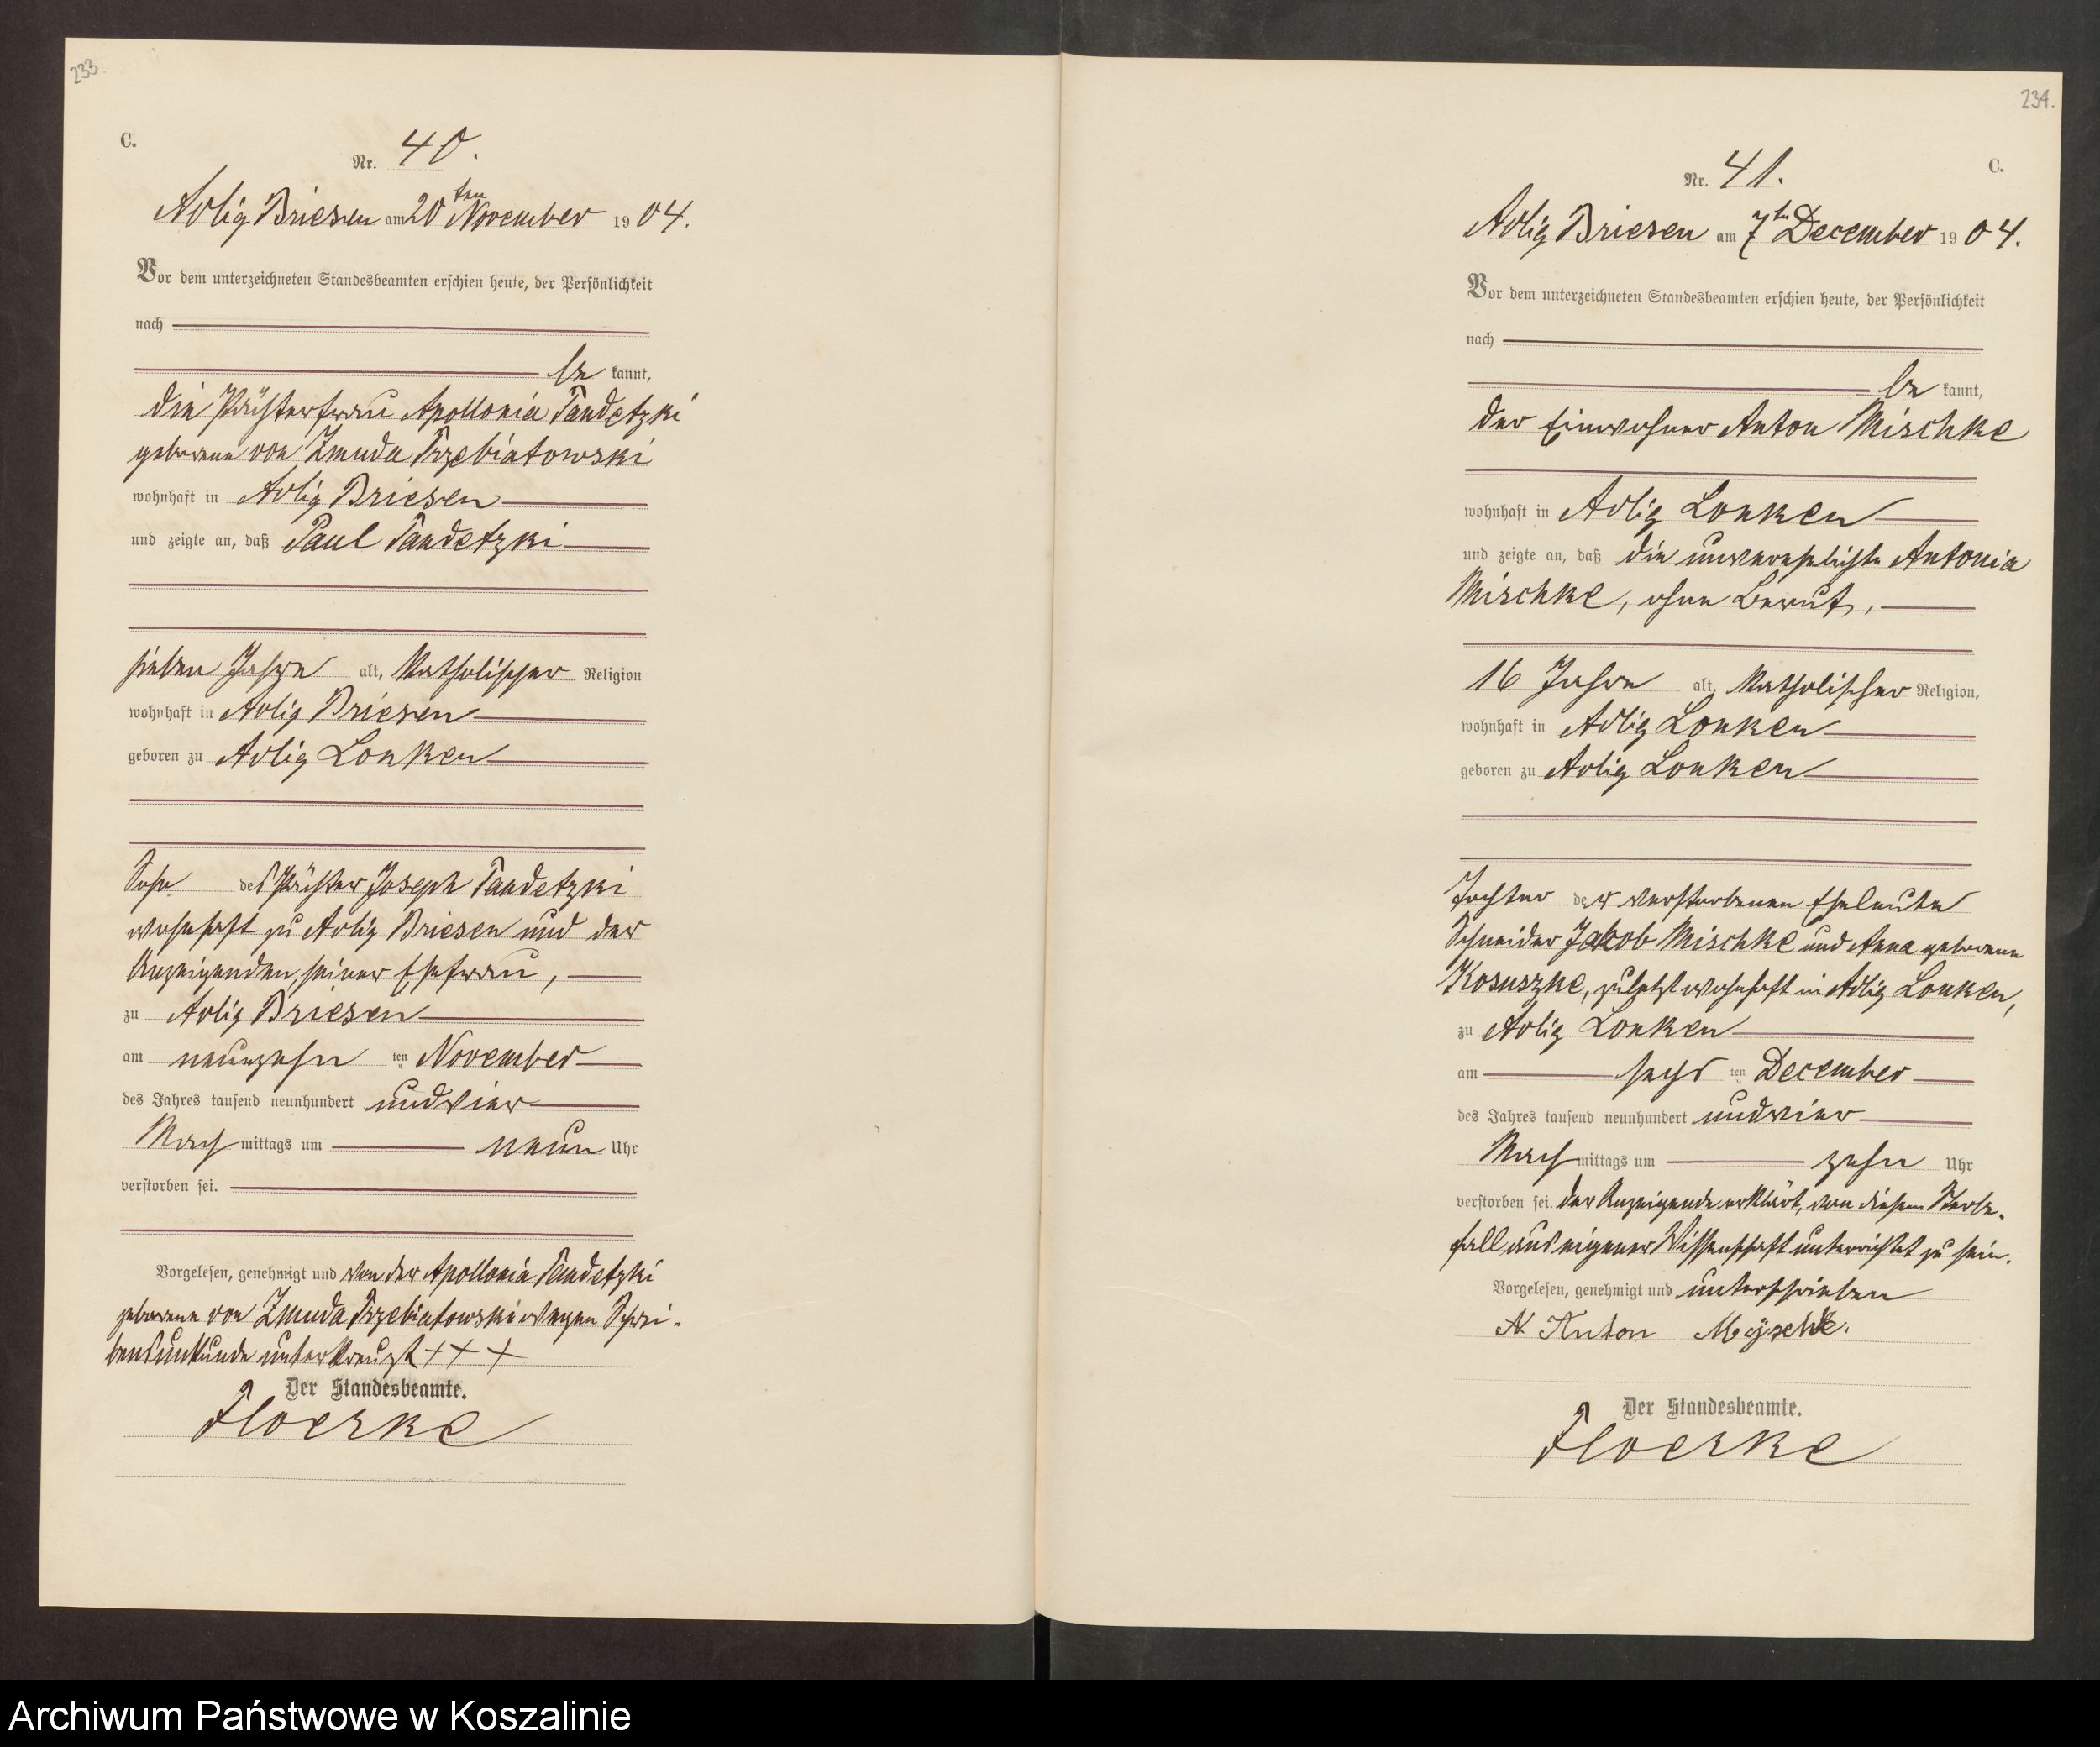 233.
C.
Nr. 40.
Adlig Briesen am 20ten November 1904.
Vor dem unterzeichneten Standesbeamten erschien heute, der Persönlichkeit
nach
be kannt,
die Pächterfrau Apollonia Pandetzki
geborene von Zmuda Trzebiatowski
wohnhaft in Adlig Briesen
und zeigte an, daß Paul Pandetzki
sieben Jahre alt, katholischer Religion
wohnhaft in Adlig Briesen
geboren zu Adlig Lonken
Sohn des Pächter Joseph Pandetzki
wohnhaft zu Adlig Briesen und der
Anzeigenden, seiner Ehefrau,
zu Adlig Briesen
am neunzehn ten November
des Jahres tausend neunhundert undvier
Nach mittags um neun Uhr
verstorben sei.
Vorgelesen, genehmigt und von der Apollonia Pandetzki
geborene von Zmuda Trzebiatowski wegen Schrei-
bensunkunde unterkreuzt + + +
Der Standesbeamte.
Floerke
234.
C.
Nr. 41.
Adlig Briesen am 7ten December 1904.
Vor dem unterzeichneten Standesbeamten erschien heute, der Persönlichkeit
nach
be kannt,
der Einwohner Anton Mischke
wohnhaft in Adlig Lonken
und zeigte an, daß die unverehelichte Antonia
Mischke, ohne Beruf,
16 Jahre alt, katholischer Religion,
wohnhaft in Adlig Lonken
geboren zu Adlig Lonken
Tochter der verstorbenen Eheleute
Schneider Jakob Mischke und Anna geborene
Kosuszke, zuletzt wohnhaft in Adlig Lonken,
zu Adlig Lonken
am sechs ten December
des Jahres tausend neunhundert undvier
Nach mittags um zehn Uhr
verstorben sei. Der Anzeigende erklärt, von diesem Sterbe-
fall aus eigener Wissenschaft unterrichtet zu sein.
Vorgelesen, genehmigt und unterschrieben
Anton Mÿschke.
Der Standesbeamte.
Floerke
Archiwum Państwowe w Koszalinie